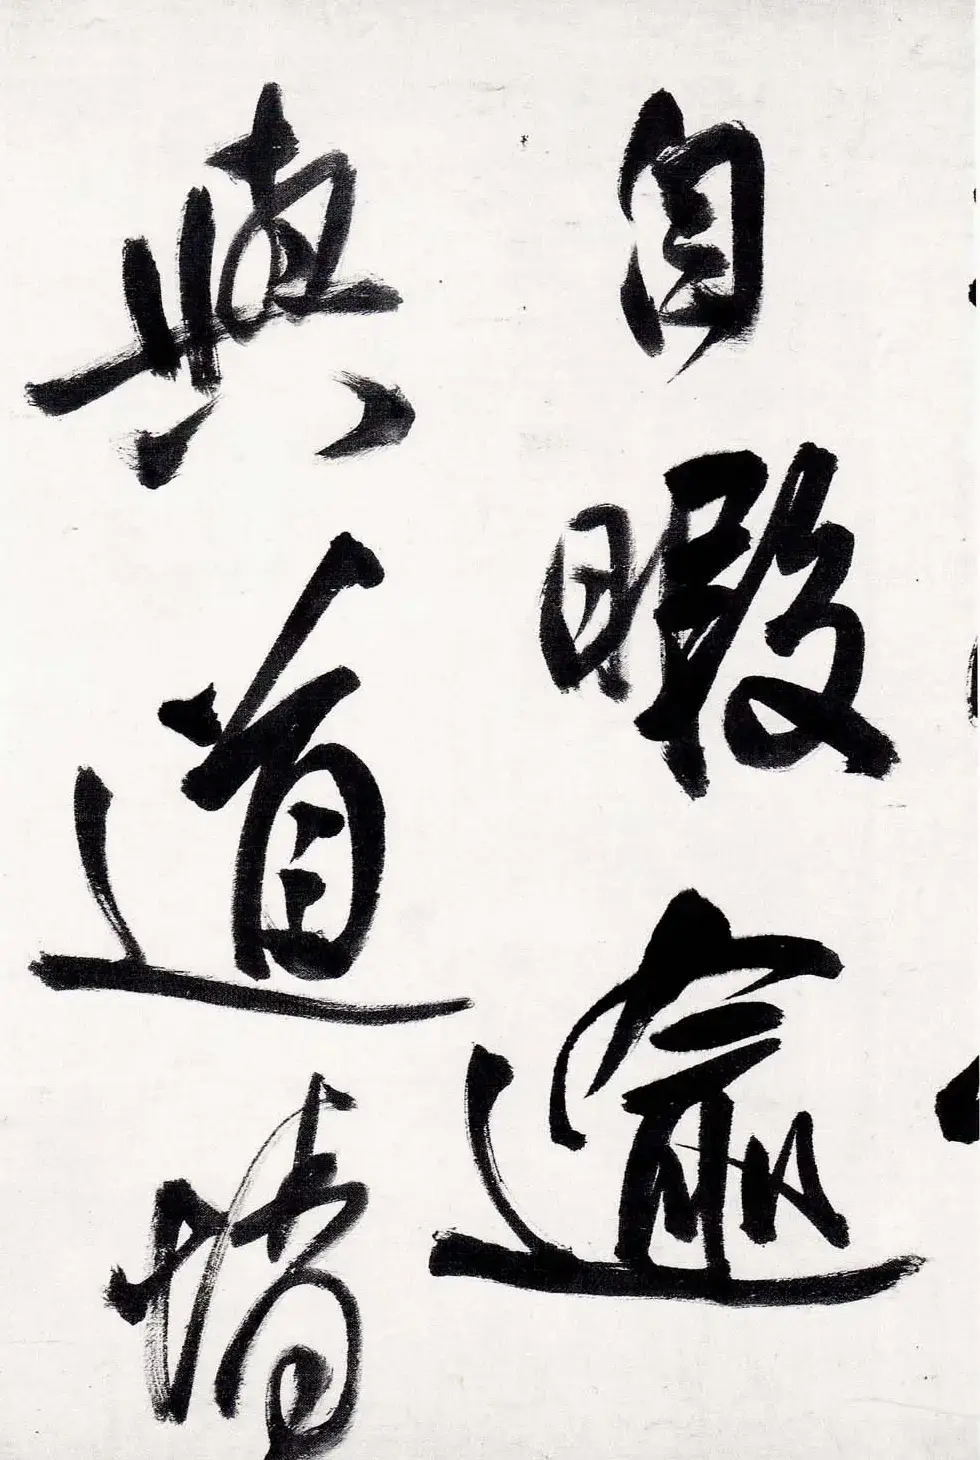 自暇逾
與道情